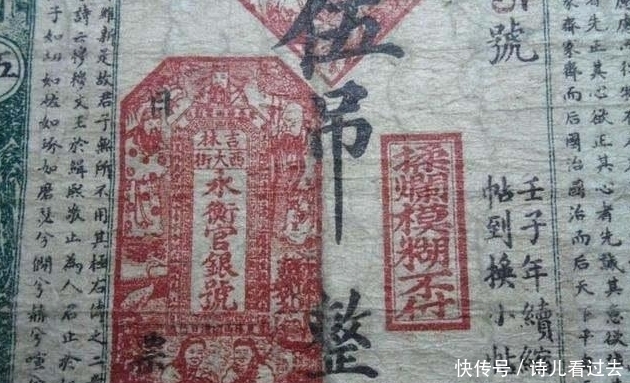 者先正其心欲正其心者先誠其意欲
家齊家齊而后國治國治而后天下平
號
壬子年續
帖到換小
揉爛模糊不付
伍吊整
吉林
西大街
永衡官銀號
日
票
維新是故君子無所不用其極右傳之二
詩云穆穆文王於緝熙敬止為人君止於
如切如磋如琢如磨瑟兮僩兮赫兮喧
五
快传号/诗儿看过去